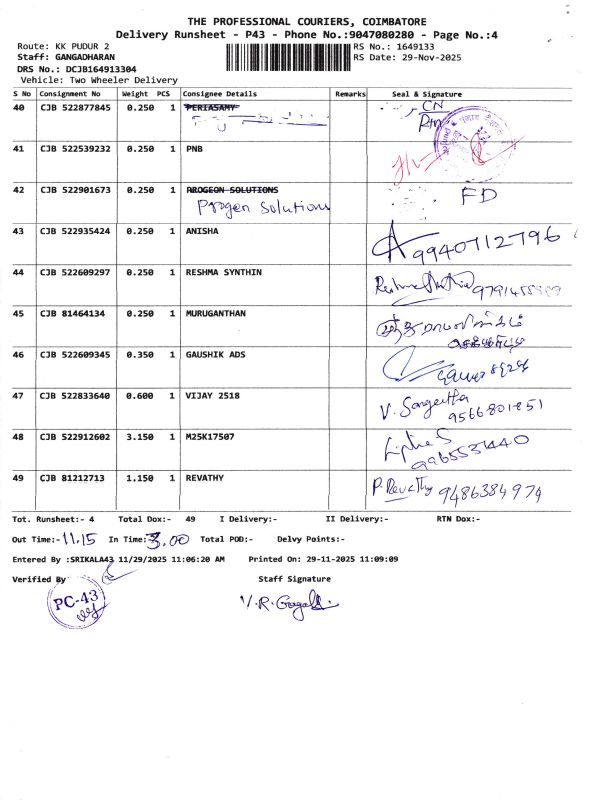 THE PROFESSIONAL COURIERS, COIMBATORE
Delivery Runsheet - P43 - Phone No.:9047080280 - Page No.:4
Route: KK PUDUR 2 RS No.: 1649133
Staff: GANGADHARAN RS Date: 29-Nov-2025
DRS No.: DCJB164913304
Vehicle: Two Wheeler Delivery
S No Consignment No Weight PCS Consignee Details Remarks Seal & Signature
40 CJB 522877845 0.250 1 PERIASAMY CN
Rtn
41 CJB 522539232 0.250 1 PNB
42 CJB 522901673 0.250 1 RROGEON SOLUTIONS FD
Progen Solutions
43 CJB 522935424 0.250 1 ANISHA 9940712796
44 CJB 522609297 0.250 1 RESHMA SYNTHIN
45 CJB 81464134 0.250 1 MURUGANTHAN
46 CJB 522609345 0.350 1 GAUSHIK ADS
47 CJB 522833640 0.600 1 VIJAY 2518 V. Sangeetha
48 CJB 522912602 3.150 1 M25K17507
9965531440
49 CJB 81212713 1.150 1 REVATHY P. Revathy 9486384974
Tot. Runsheet:- 4 Total Dox:- 49 I Delivery:- II Delivery:- RTN Dox:-
Out Time:- 11.15 In Time:- 3.00 Total POD:- Delvy Points:-
Entered By :SRIKALA43 11/29/2025 11:06:20 AM Printed On: 29-11-2025 11:09:09
Verified By Staff Signature
PC-43